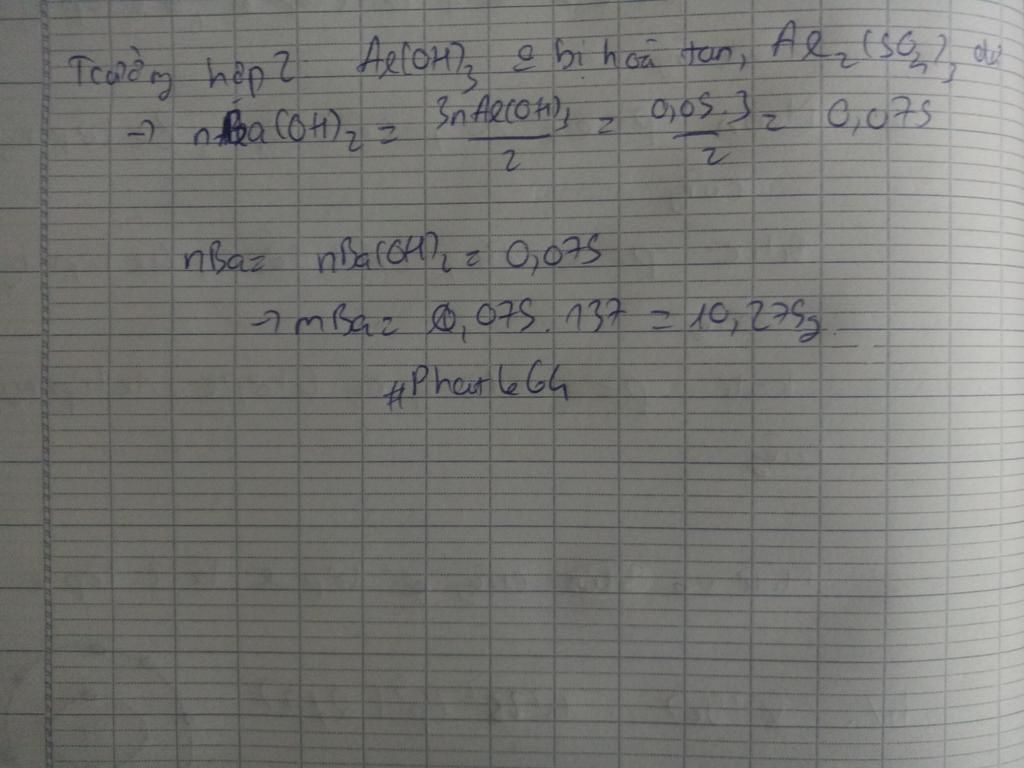 Trường hợp 2: Al(OH)3 ko bị hoà tan, Al2(SO4)3 dư
→ nBa(OH)2 = 3nAl(OH)3 / 2 = 0,05.3 / 2 = 0,075
nBa = nBa(OH)2 = 0,075
→ mBa = 0,075.137 = 10,275g